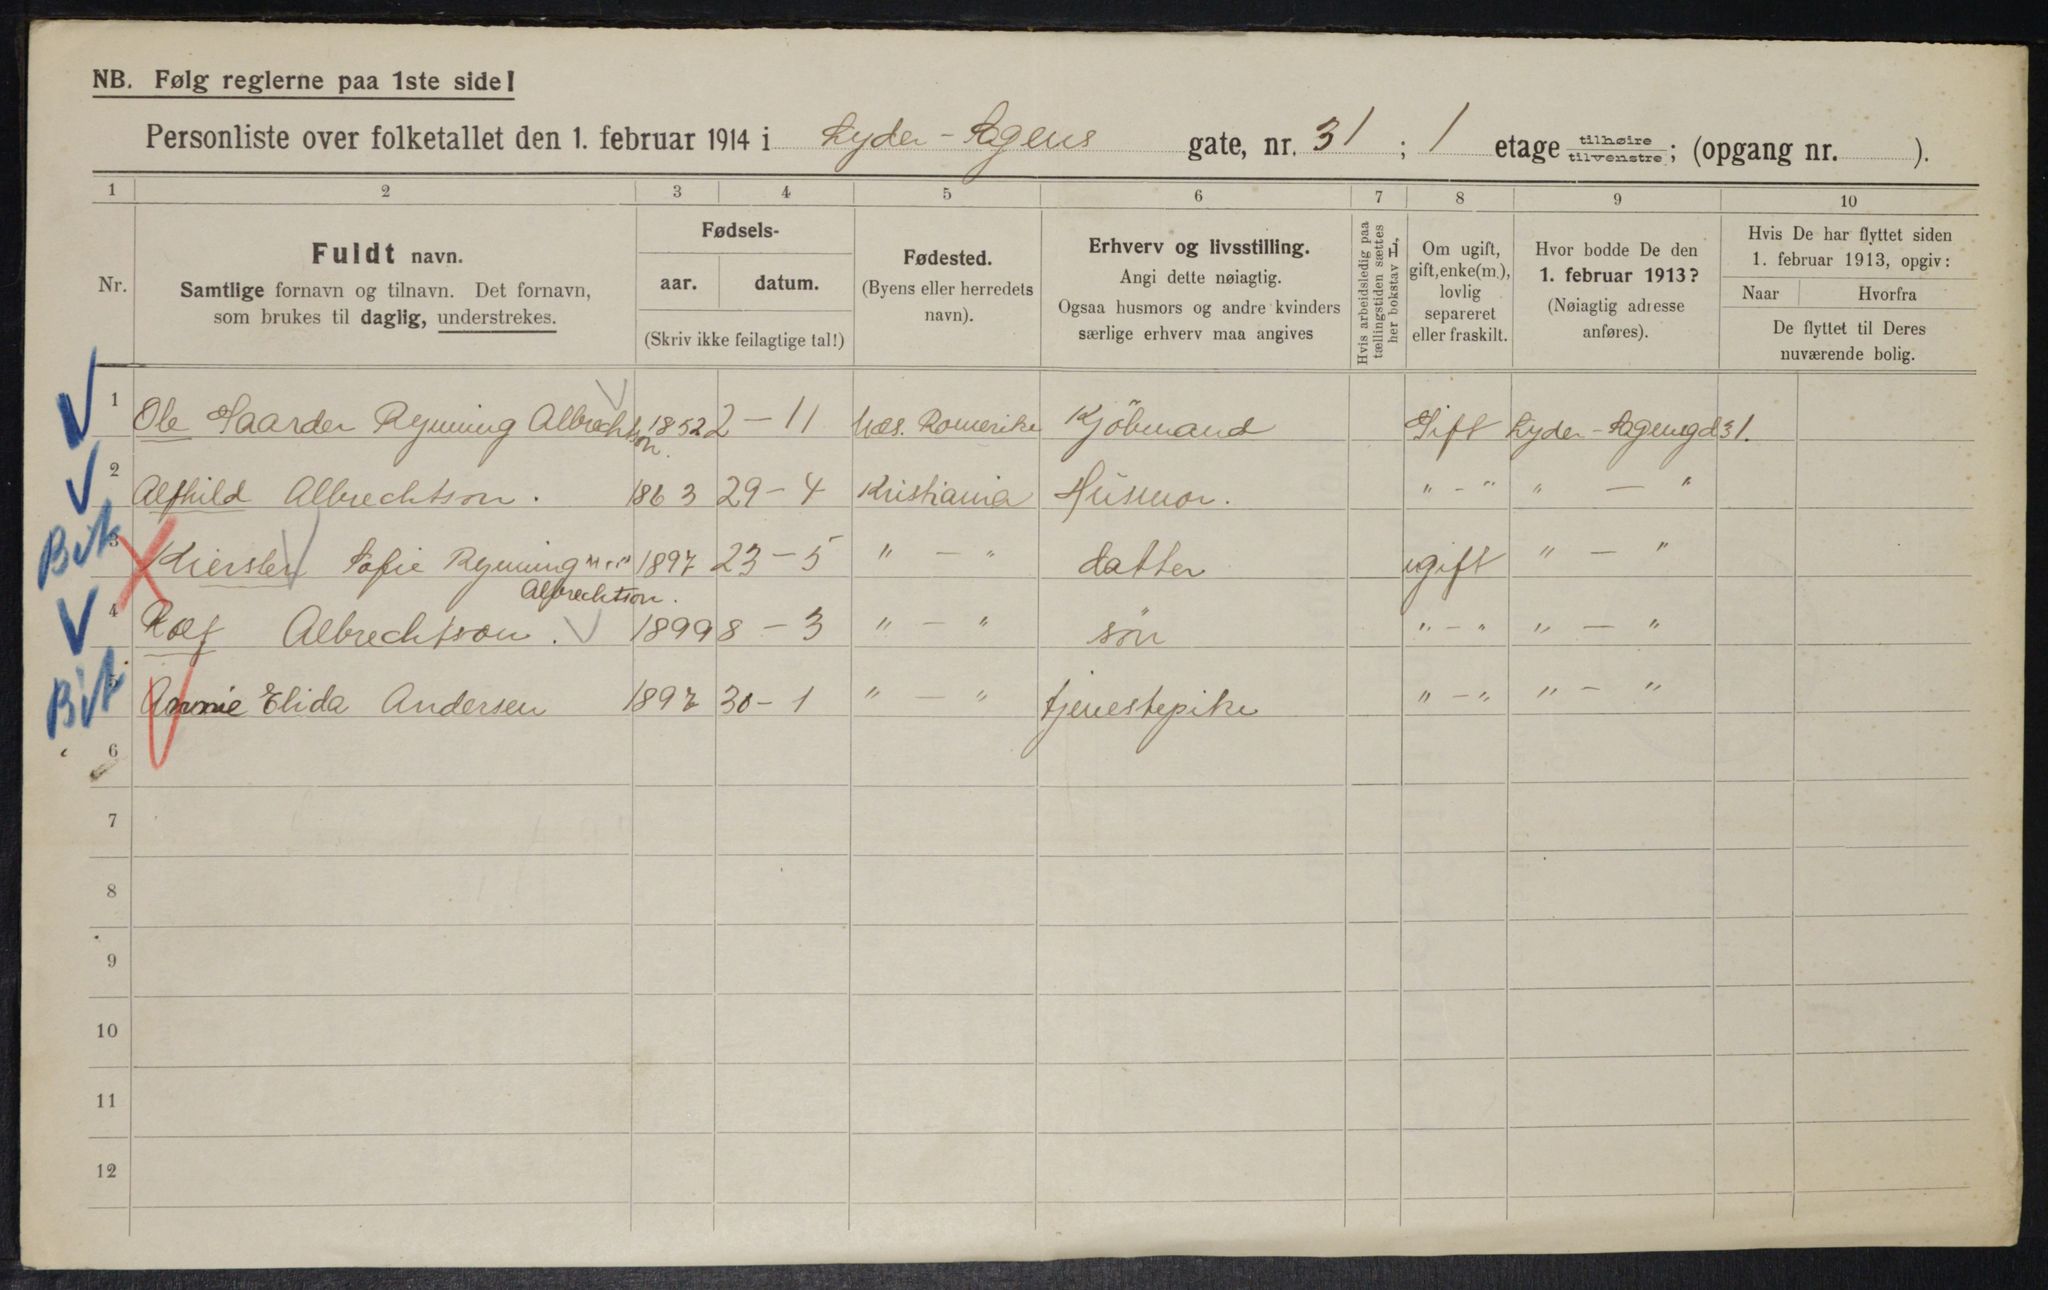 NB. Følg reglerne paa 1ste side!
Personliste over folketallet den 1. februar 1914 i Lyder-Sagens gate, nr. 31; 1 etage tilhøire tilvenstre; (opgang nr. ).
1 2 3 4 5 6 7 8 9 10
Nr.
Fuldt navn.
Samtlige fornavn og tilnavn. Det fornavn,
som brukes til daglig, understrekes.
Fødsels-
aar. datum.
(Skriv ikke feilagtige tal!)
Fødested.
(Byens eller herredets
navn).
Erhverv og livsstilling.
Angi dette nøiagtig.
Ogsaa husmors og andre kvinders
særlige erhverv maa angives
Hvis arbeidsledig paa
tællingstiden sættes
her bokstav L,
Om ugift,
gift, enke(m.),
lovlig
separeret
eller fraskilt.
Hvor bodde De den
1. februar 1913?
(Nøiagtig adresse
anføres).
Hvis De har flyttet siden
1. februar 1913, opgiv:
Naar Hvorfra
De flyttet til Deres
nuværende bolig.
1 Ole Saarder Ryming Albrechtson. 1852 2-11 Næs. Romerike Kjöbmand Gift Lyder-Sagensgd 31.
2 Alfhild Albrechtson. 1863 29-4 Kristiania Husmor. "-" " - "
Bit 3 Kiersten Sofie Ryming 1897 23-5 " - " datter ugift " - "
Albrechtson.
4 Rolf Albrechtson. 1899 8-3 " - " sön "-" " - "
Bit 5 Annie Elida Andersen 1897 30-1 " - " tjenestepike "-" " - "
6
7
8
9
10
11
12